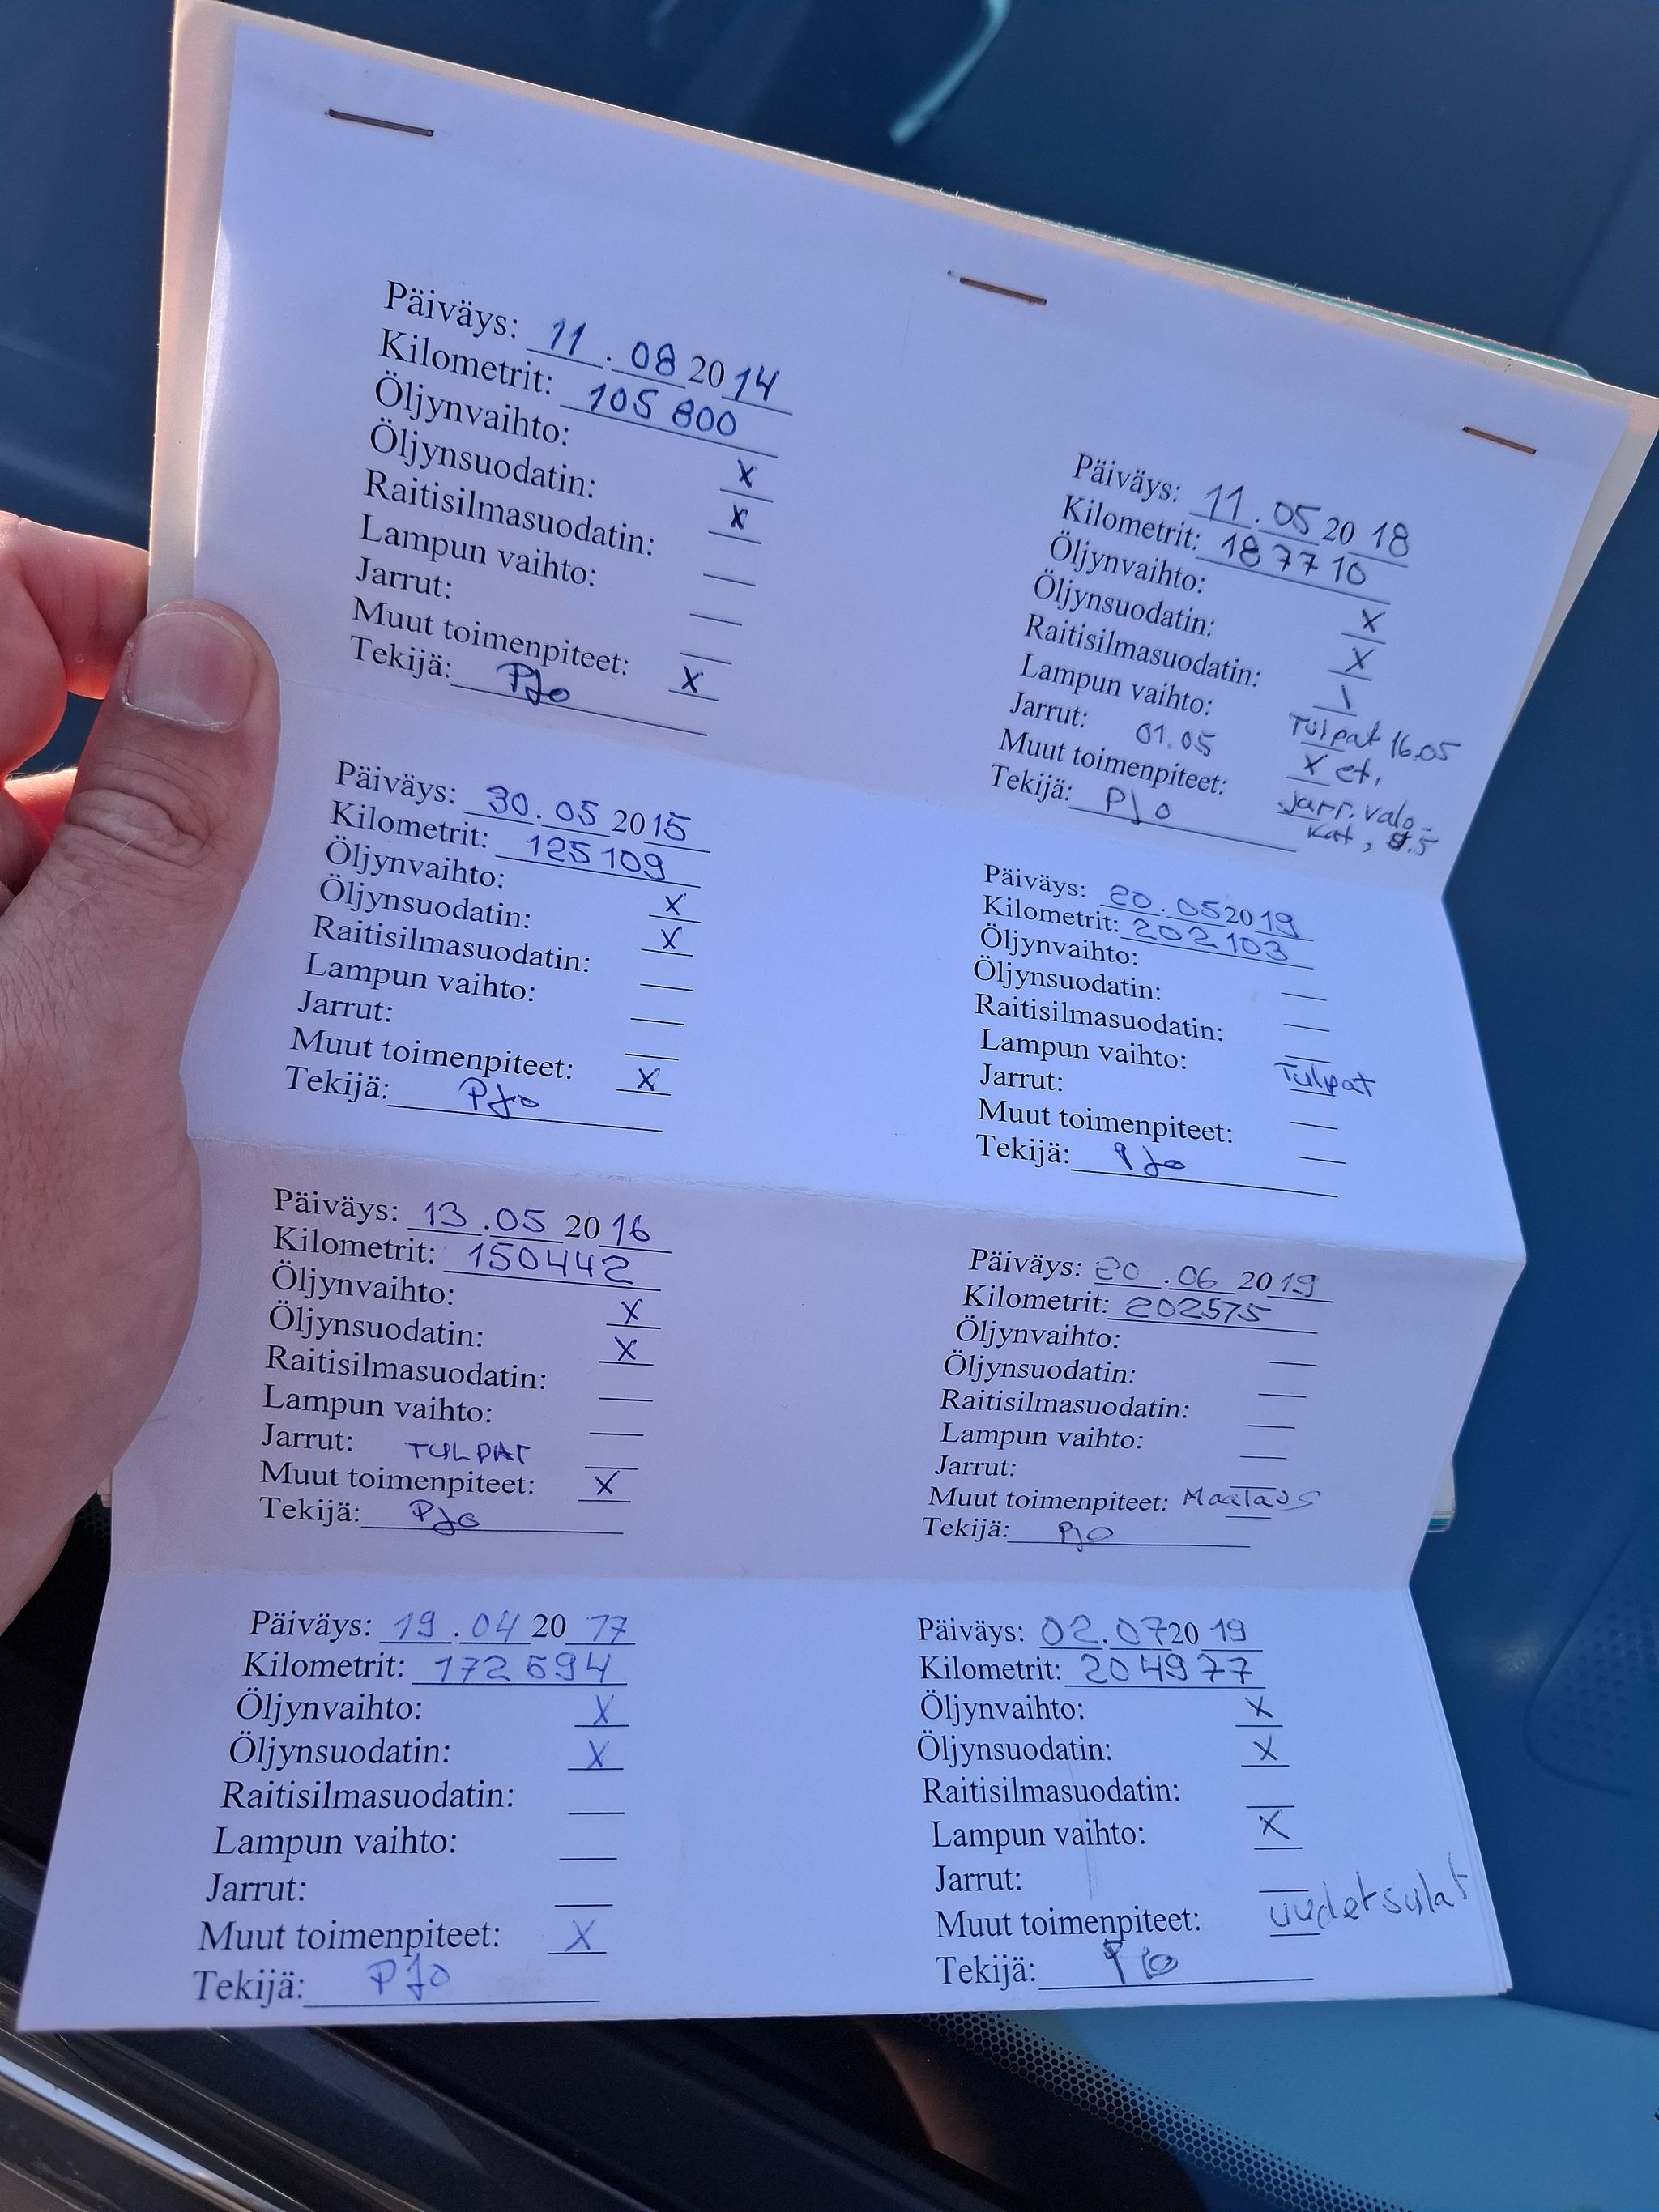 Päiväys: 11.08 2014
Kilometrit: 105 800
Öljynvaihto: X
Öljynsuodatin: X
Raitisilmasuodatin:
Lampun vaihto:
Jarrut:
Muut toimenpiteet: X
Tekijä: PJo
Päiväys: 30.05 2015
Kilometrit: 125109
Öljynvaihto: X
Öljynsuodatin: X
Raitisilmasuodatin:
Lampun vaihto:
Jarrut:
Muut toimenpiteet: X
Tekijä: PJo
Päiväys: 13.05 2016
Kilometrit: 150442
Öljynvaihto: X
Öljynsuodatin: X
Raitisilmasuodatin:
Lampun vaihto:
Jarrut: TULPAT
Muut toimenpiteet: X
Tekijä: PJo
Päiväys: 19.04 2017
Kilometrit: 172694
Öljynvaihto: X
Öljynsuodatin: X
Raitisilmasuodatin:
Lampun vaihto:
Jarrut:
Muut toimenpiteet: X
Tekijä: PJo
Päiväys: 11.05 2018
Kilometrit: 187710
Öljynvaihto: X
Öljynsuodatin: X
Raitisilmasuodatin:
Lampun vaihto: Tulpat 16.05
Jarrut: 01.05 X et.
Muut toimenpiteet: jarr.valo-
kat, 5.5
Tekijä: PJo
Päiväys: 20.05 2019
Kilometrit: 202103
Öljynvaihto:
Öljynsuodatin:
Raitisilmasuodatin:
Lampun vaihto: Tulpat
Jarrut:
Muut toimenpiteet:
Tekijä: PJo
Päiväys: 20.06 2019
Kilometrit: 202575
Öljynvaihto:
Öljynsuodatin:
Raitisilmasuodatin:
Lampun vaihto:
Jarrut:
Muut toimenpiteet: Maalaus
Tekijä: PJo
Päiväys: 02.07 2019
Kilometrit: 204977
Öljynvaihto: X
Öljynsuodatin: X
Raitisilmasuodatin:
Lampun vaihto: X
Jarrut:
Muut toimenpiteet: uudet sulat
Tekijä: PJo